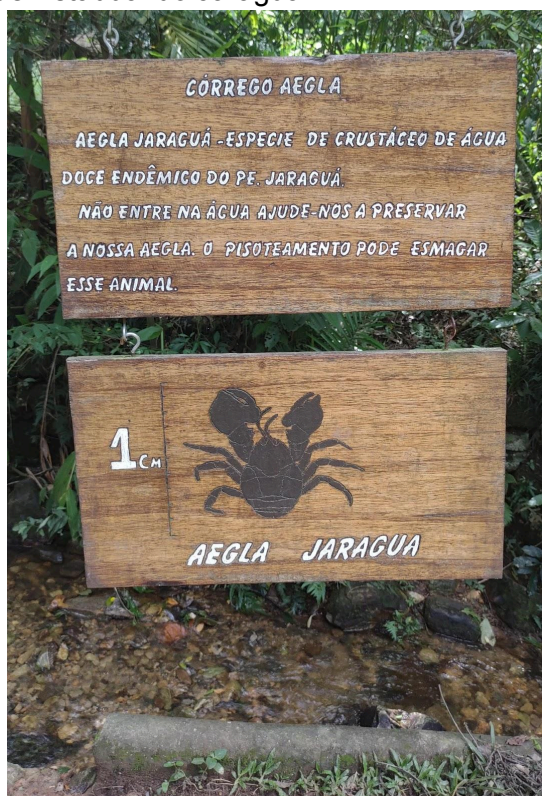 CÓRREGO AEGLA
AEGLA JARAGUÁ - ESPECIE DE CRUSTÁCEO DE ÁGUA
DOCE ENDÊMICO DO PE. JARAGUÁ.
NÃO ENTRE NA ÁGUA AJUDE-NOS A PRESERVAR
A NOSSA AEGLA. O PISOTEAMENTO PODE ESMAGAR
ESSE ANIMAL.
1CM
AEGLA JARAGUA